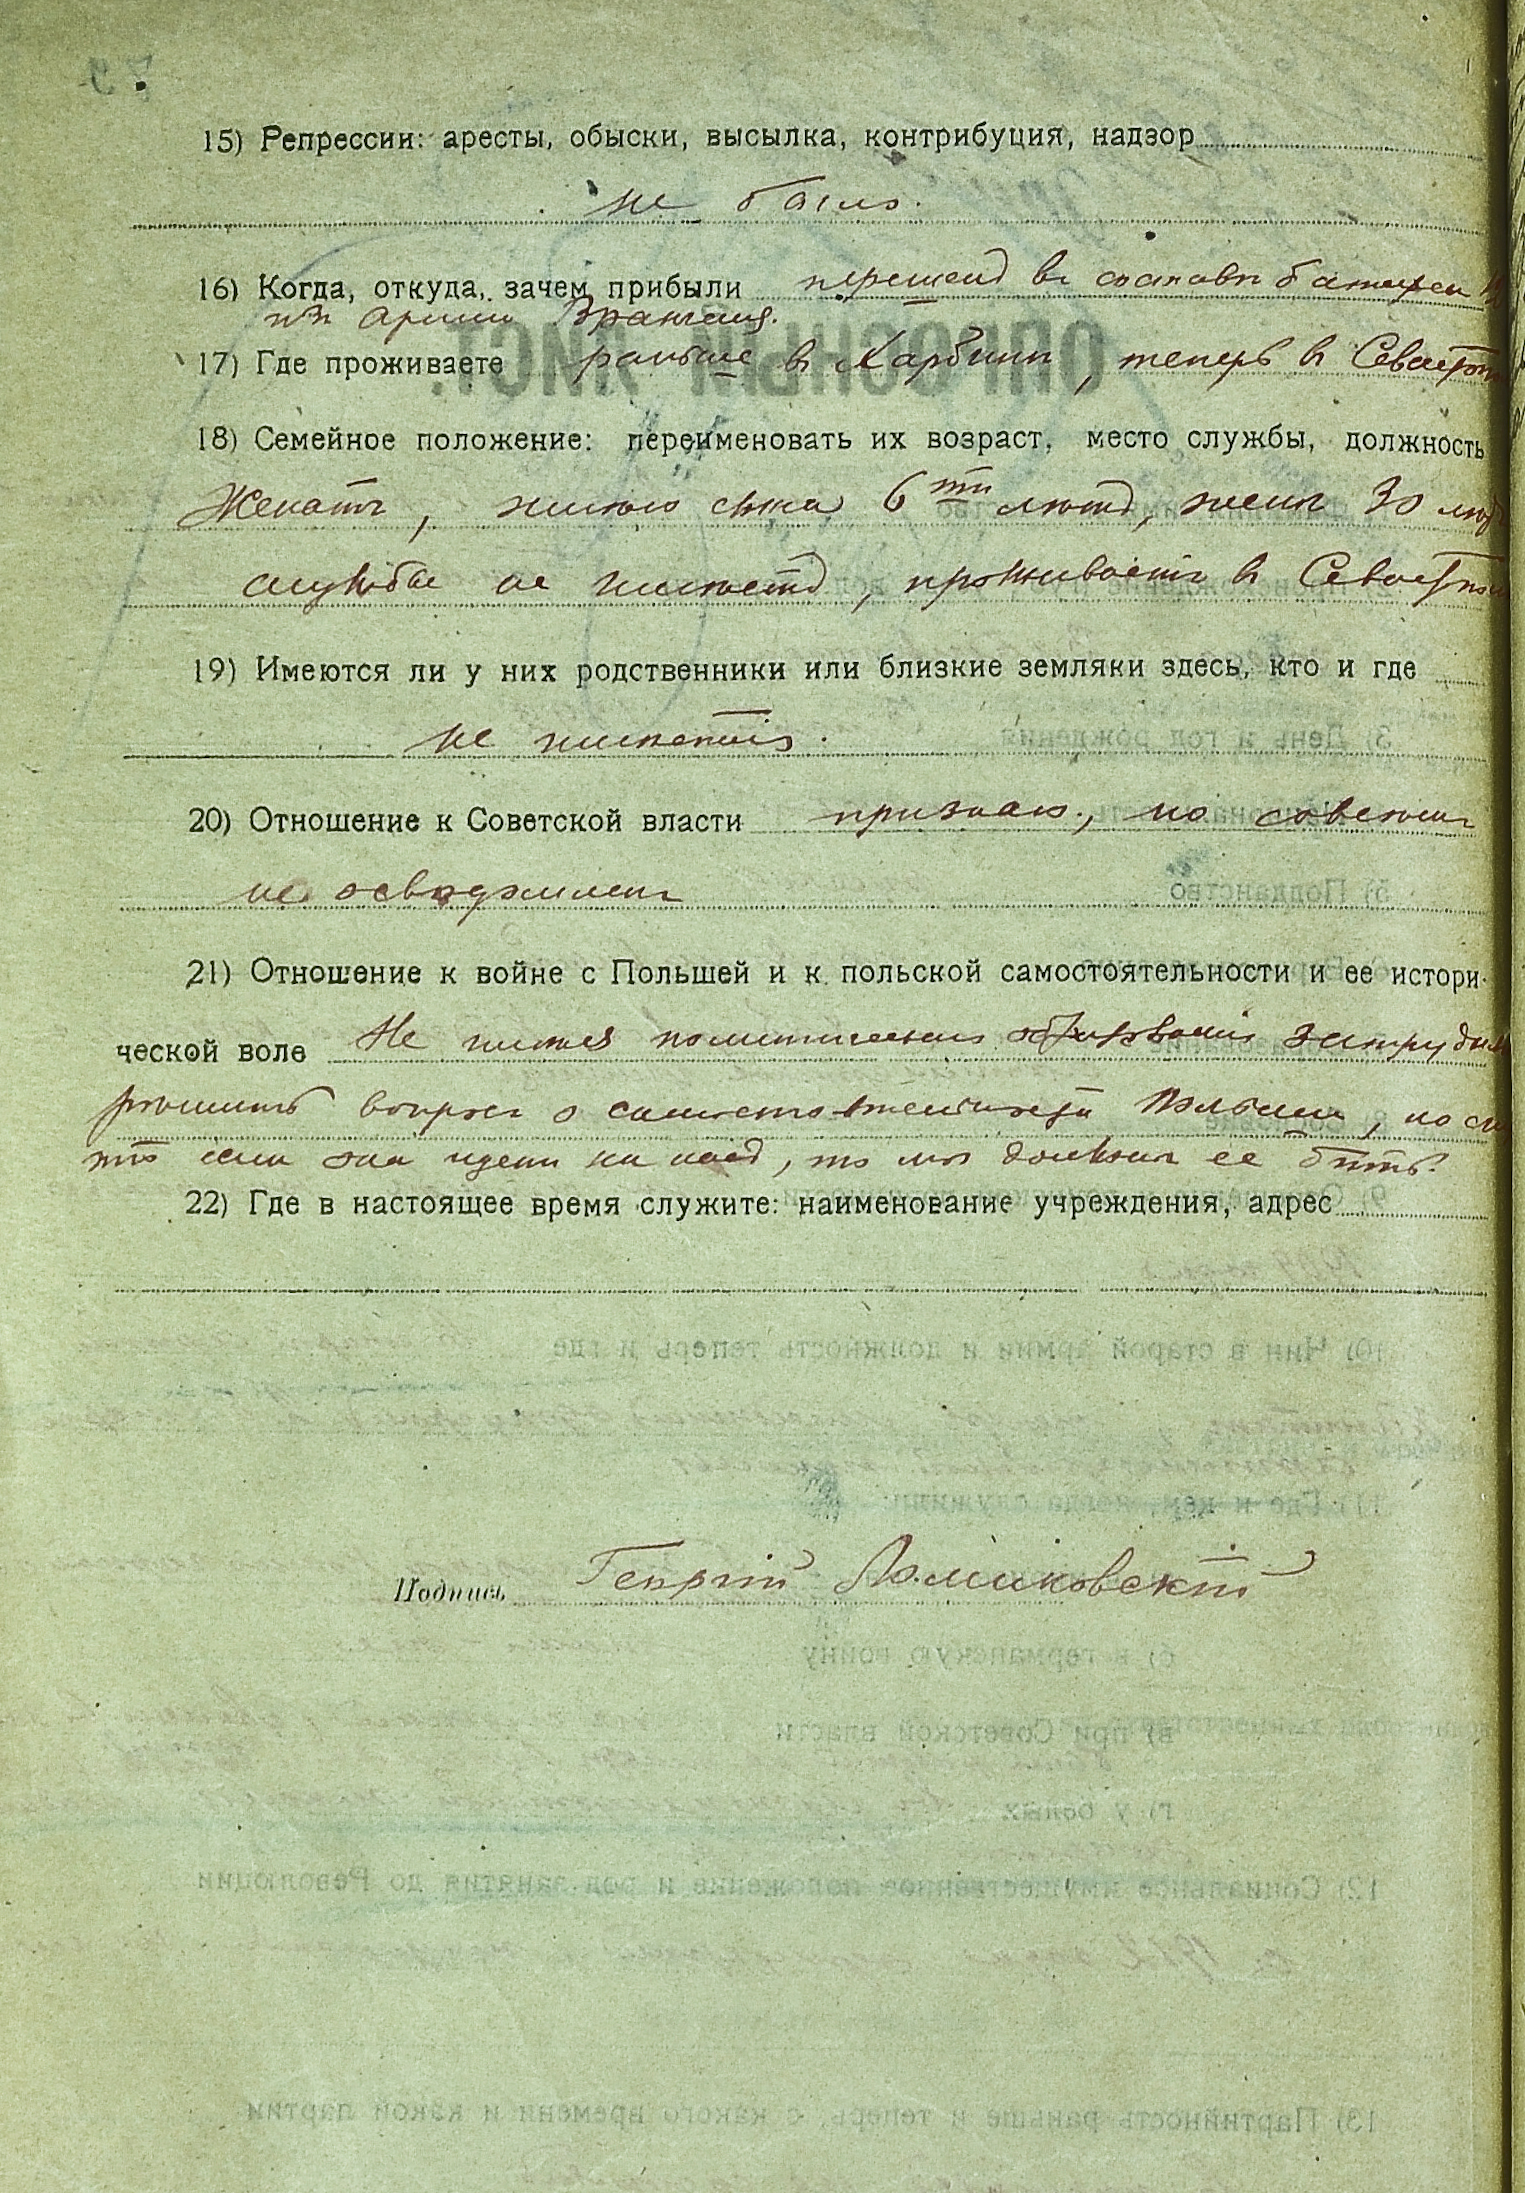 15) Репрессии: аресты, обыски, высылка, контрибуция, надзор
не было.
16) Когда, откуда, зачем прибыли перешелъ въ составѣ батареи
изъ Армии Врангеля.
17) Где проживаете раньше въ Харбинѣ, теперь въ Севастоп
18) Семейное положение: переименовать их возраст, место службы, должность
Женатъ, имѣю сына 6ти лѣтъ, жена 30 лѣтъ
службы не имѣетъ, проживаетъ въ Севастопол
19) Имеются ли у них родственники или близкие земляки здесь, кто и где
не имѣется.
20) Отношение к Советской власти признаю, но совсѣмъ
не освѣдомленъ
21) Отношение к войне с Польшей и к польской самостоятельности и ее истори-
ческой воле Не имѣя политическаго образованія затрудн
рѣшить вопросъ о самостоятельности Польши, но
что если она идетъ на насъ, то мы должны ее бить.
22) Где в настоящее время служите: наименование учреждения, адрес
Подпись Георгій